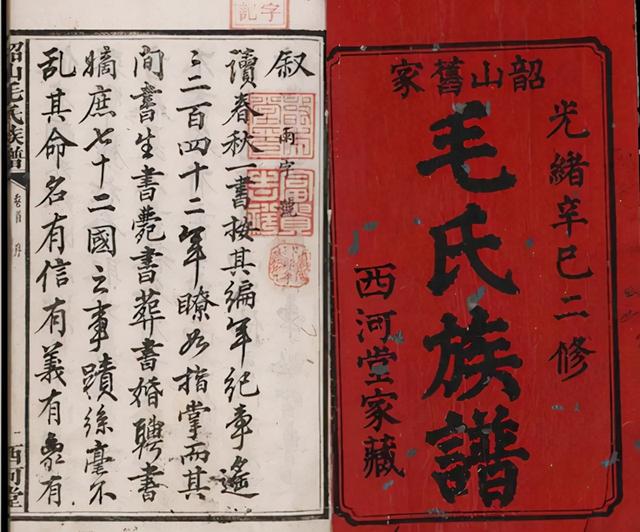 韶山舊家
光緒辛巳二修
毛氏族譜
西河堂家藏
叙
雨字號
讀春秋一書按其編年紀事遙
〻二百四十二年瞭如指掌而其
間書生書薨書葬書婚聘書
嫡庶七十二國之事蹟絲毫不
乱其命名有信有義有象有
韶山毛氏族譜
卷首 序
一
西河堂